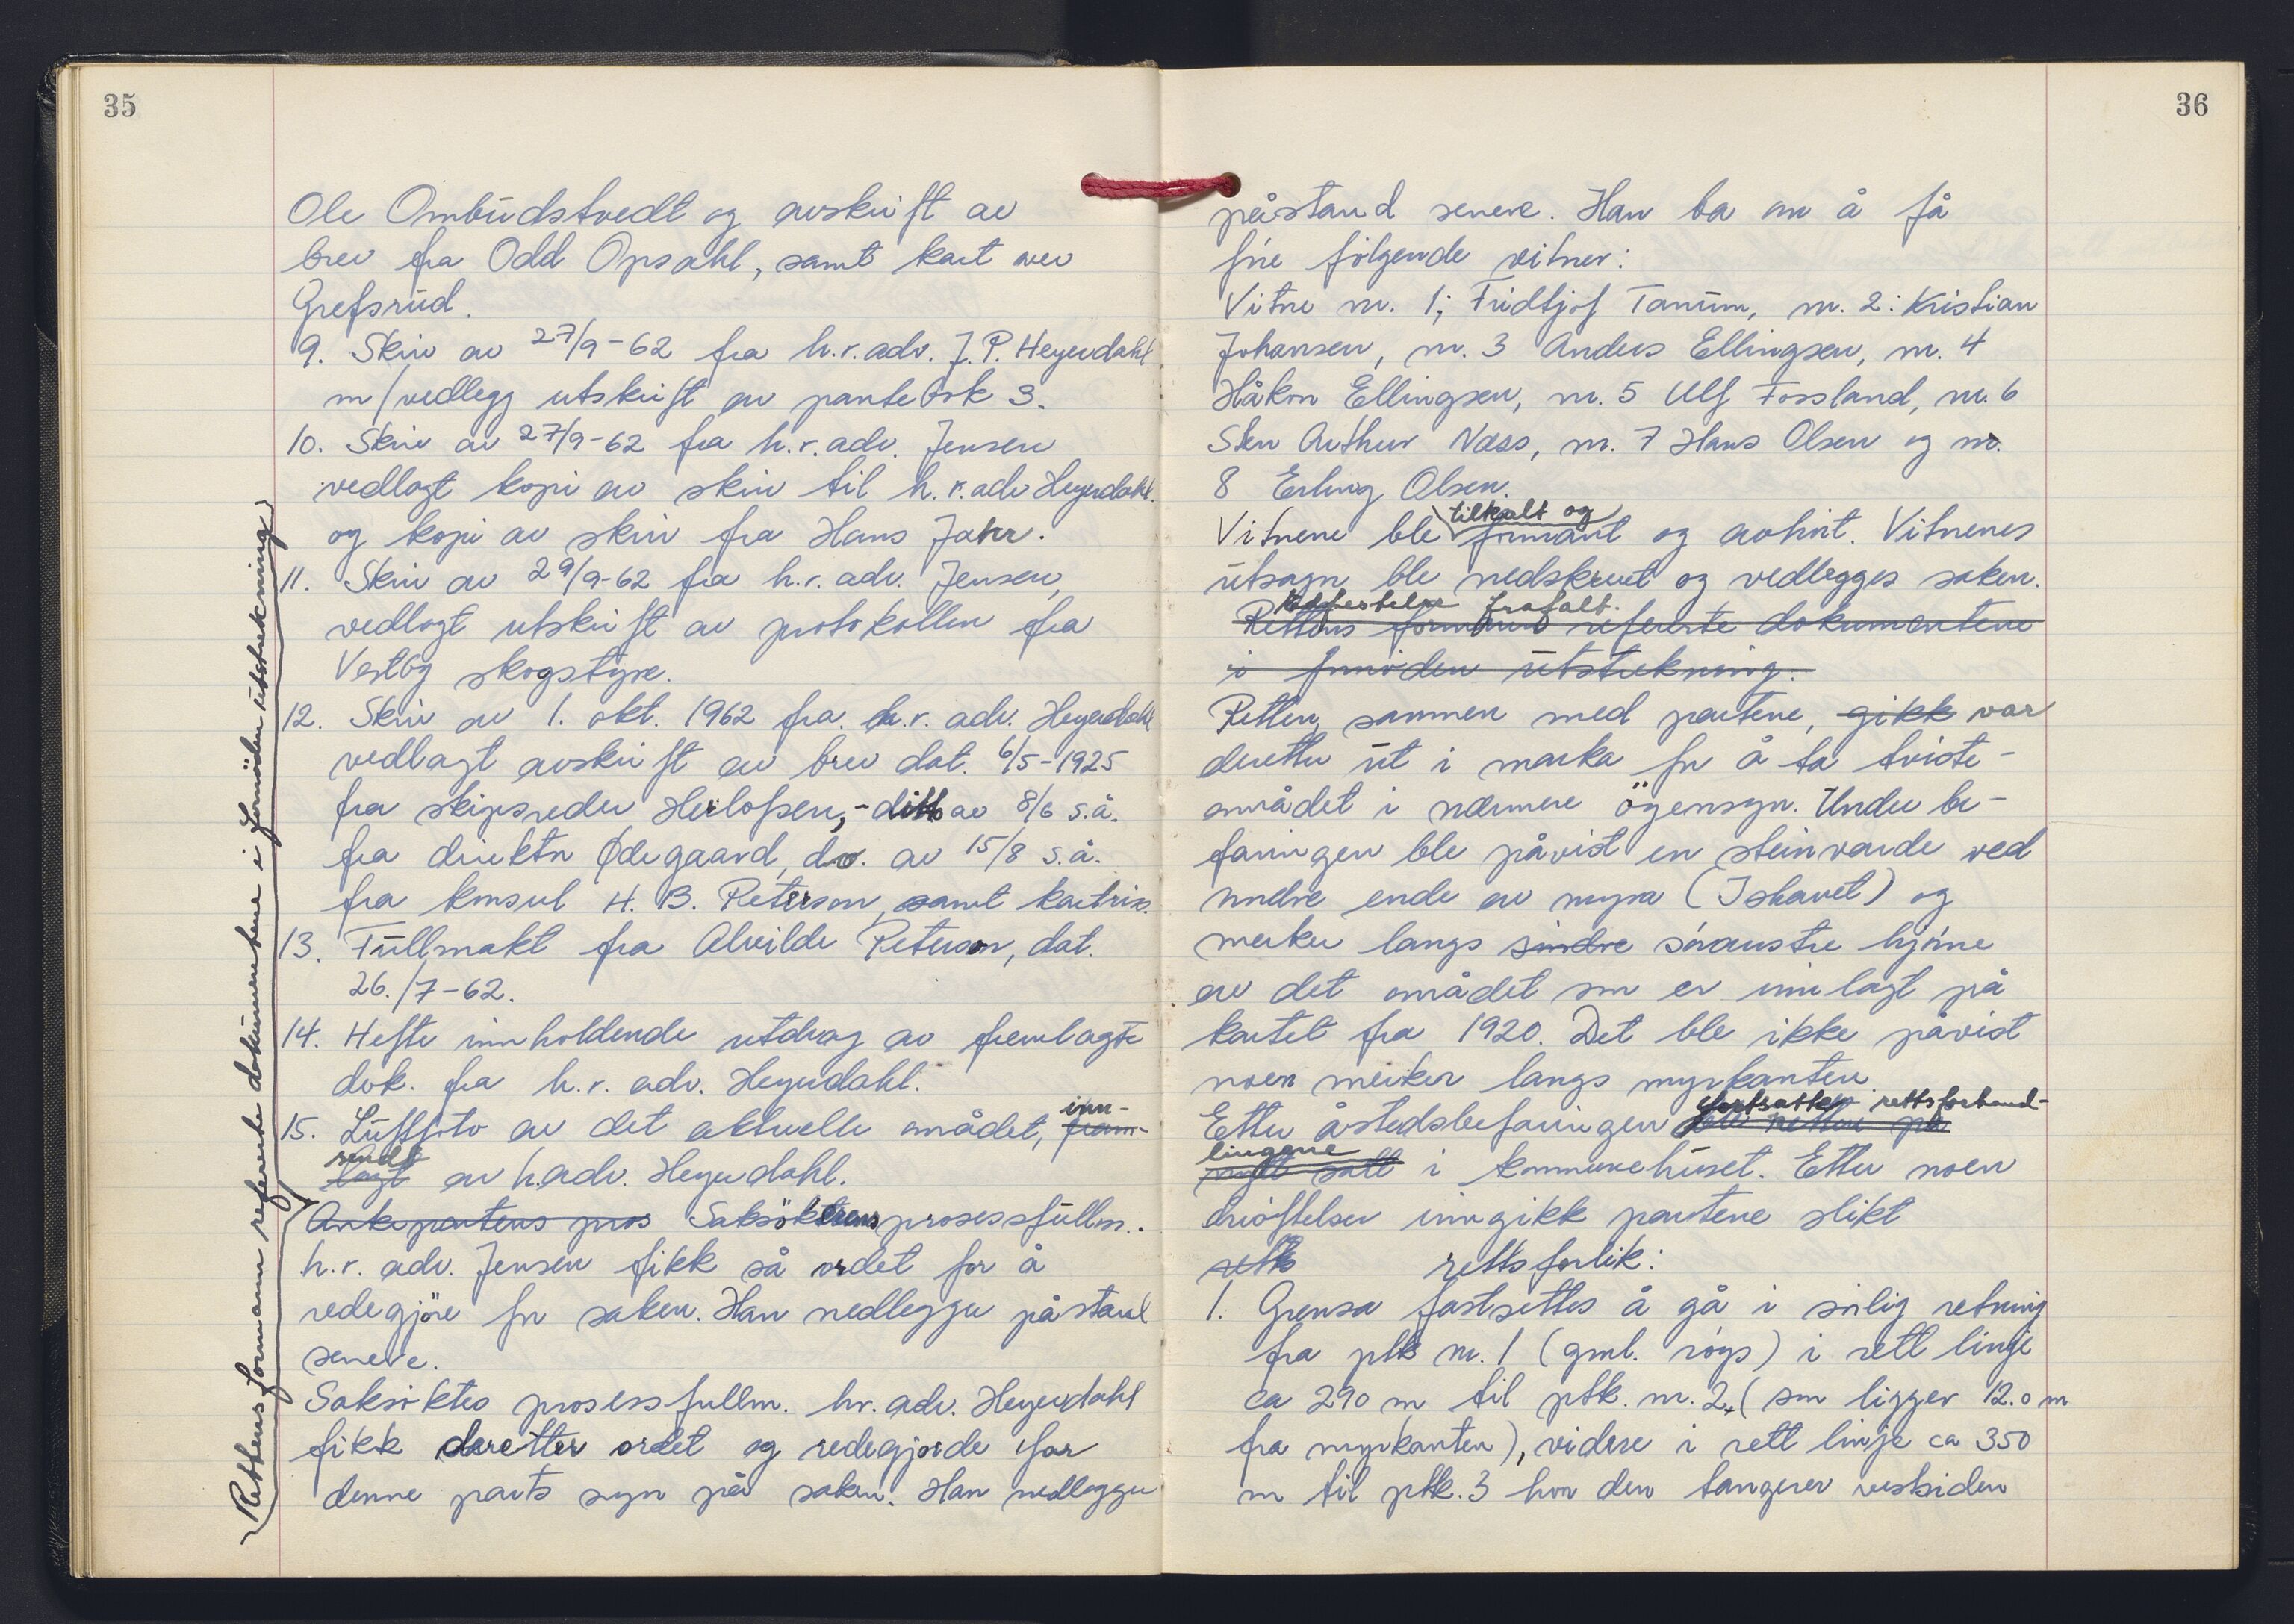 35
Ole Ombudstvedt og avskrift av
brev fra Odd Opsahl, samt kart over
Grefsrud.
9. Skriv av 27/9-62 fra h.r.adv. J.P. Heyerdahl
m/vedlegg utskrift av pantebok 3.
10. Skriv av 27/9-62 fra h.r.adv. Jensen
vedlagt kopi av skriv til h.r.adv Heyerdahl.
og kopi av skriv fra Hans Jahr.
11. Skriv av 29/9-62 fra h.r.adv. Jensen,
vedlagt utskrift av protokollen fra
Vestby skogstyre.
12. Skriv av 1. okt. 1962 fra h.r. adv. Heyerdahl
vedlagt avskrift av brev dat. 6/5-1925
fra skipsreder Herlofsen,- ditto av 8/6 s.å.
fra direktør Ødegaard, do. av 15/8 s.å.
fra konsul H. B. Peterson, samt kartriss.
13. Fullmakt fra Alvilde Peterson, dat.
26./7-62.
14. Hefte innholdende utdrag av fremlagte
dok. fra h.r. adv. Heyerdahl.
15. Luftfoto av det aktuelle området, inn-
fram-
sendt
lagt av h.adv. Heyerdahl.
Ankepartens pros Saksökerens prosessfullm.
h.r. adv. Jensen fikk så ordet for å
redegjöre for saken. Han nedlegger påstand
senere.
Saksöktes prosessfullm. hr. adv. Heyerdahl
fikk deretter ordet og redegjorde for
denne parts syn på saken. Han nedlegger
Rettens formann refererte dokumentene i fornöden utstrekning
36
påstand senere. Han ba om å få
före fölgende vitner:
Vitne nr. 1; Fridtjof Tanum, nr. 2: Kristian
Johansen, nr. 3 Anders Ellingsen, nr. 4
Håkon Ellingsen, nr. 5 Ulf Fossland, nr. 6
Sten Arthur Næss, nr. 7 Hans Olsen og nr.
8 Erling Olsen.
tilkalt og
Vitnene ble formant og avhört. Vitnenes
utsagn ble nedskrevet og vedlegges saken.
Vedtestelse frafalt.
Rettens formann refererte dokumentene
i fornöden utstrekning.
Retten, sammen med partene, gikk var
deretter ut i marka for å ta tviste-
området i nærmere ögensyn. Under be-
faringen ble påvist en steinvarde ved
nordre ende av myra (Ishavet) og
merker langs söndre söraustre hjörne
av det området som er innlagt på
kartet fra 1920. Det ble ikke påvist
noen merker langs myrkanten.
fortsatte rettsforhand-
Etter åstedsbefaringen ble retten på
lingene
nytt satt i kommunehuset. Etter noen
dröftelser inngikk partene slikt
retts rettsforlik:
1. Grensa fastsettes å gå i sörlig retning
fra ptk nr. 1 (gml. röys) i rett linje
ca 290 m til ptk. nr. 2, (som ligger 12.0 m
fra myrkanten), videre i rett linje ca 350
m til ptk. 3 hvor den tangerer vestsiden